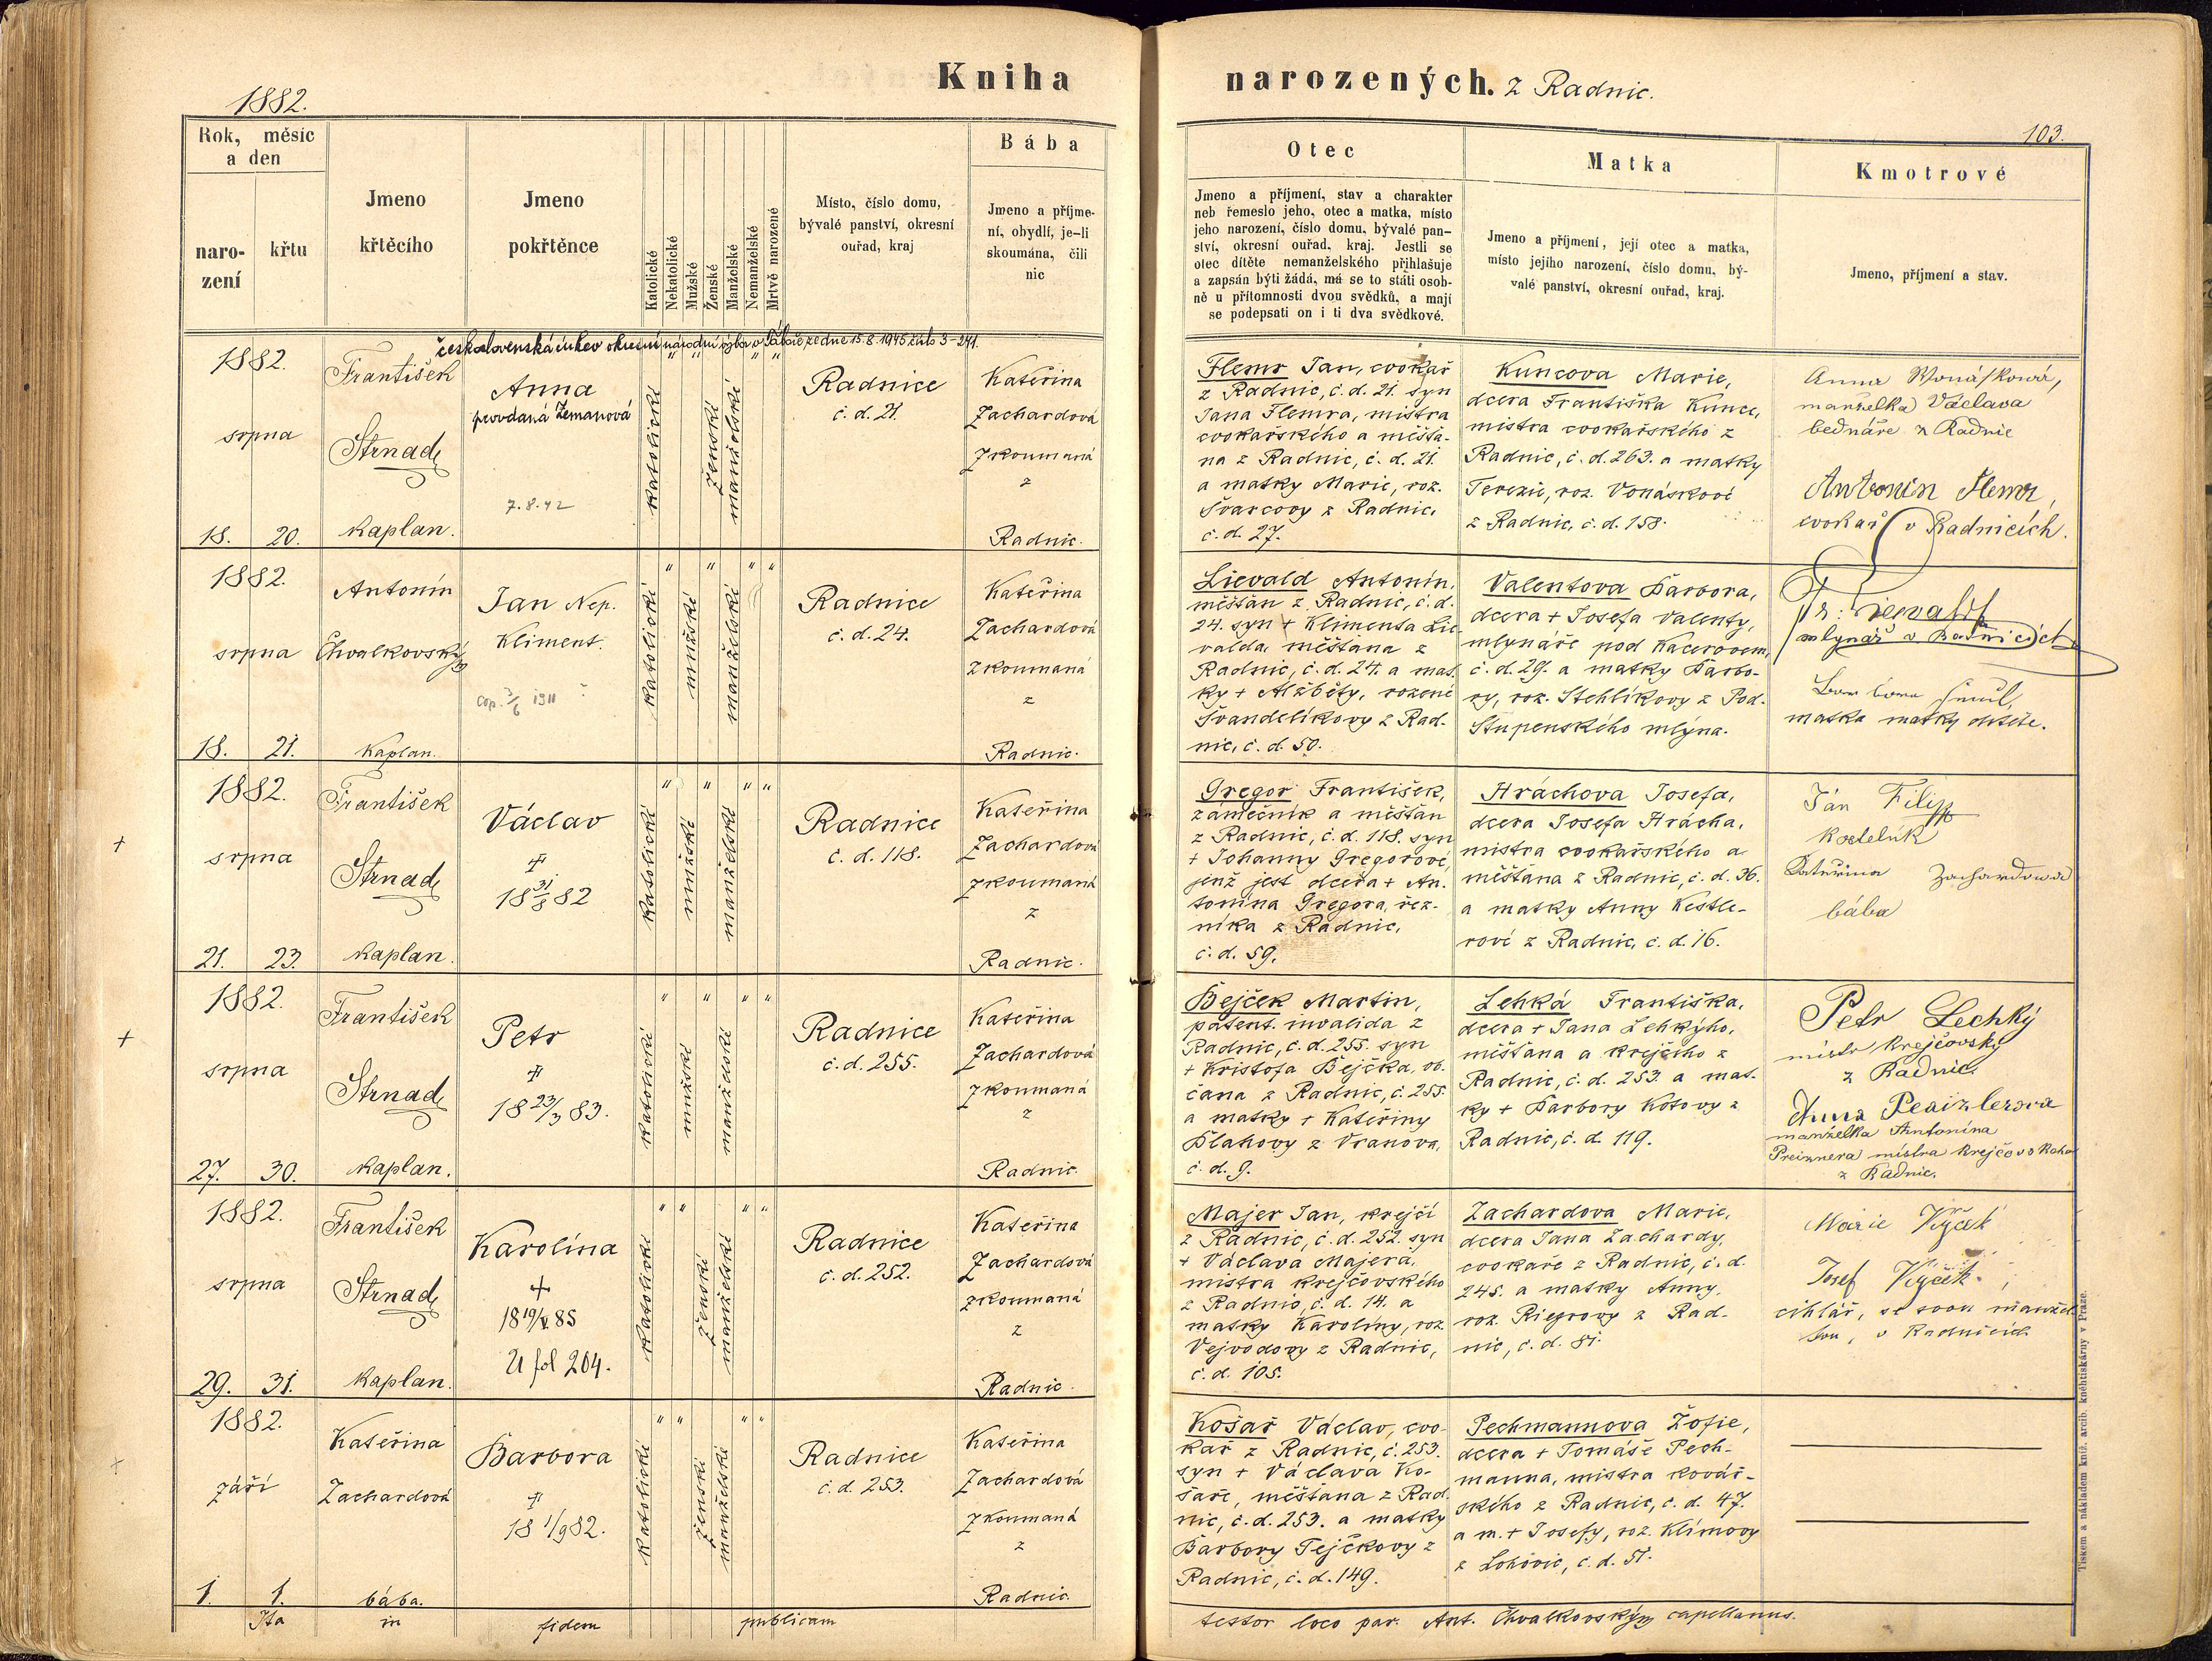 Kniha narozených. z Radnic.
1882.
103.
Rok, měsíc
a den
naro-
zení
křtu
Jmeno
křtěcího
Jmeno
pokřtěnce
Katolické
Nekatolické
Mužské
Ženské
Manželské
Nemanželské
Mrtvě narozené
Místo, číslo domu,
bývalé panství, okresní
ouřad, kraj
Bába
Jmeno a příjme-
ní, obydlí, je-li
skoumána, čili
nic
Otec
Jmeno a příjmení, stav a charakter
neb řemeslo jeho, otec a matka, místo
jeho narození, číslo domu, bývalé pan-
ství, okresní ouřad, kraj. Jestli se
otec dítěte nemanželského přihlašuje
a zapsán býti žádá, má se to státi osob-
ně u přítomnosti dvou svědků, a mají
se podepsati on i ti dva svědkové.
Matka
Jmeno a příjmení, její otec a matka,
místo jejího narození, číslo domu, bý-
valé panství, okresní ouřad, kraj.
Kmotrové
Jmeno, příjmení a stav.
československá církev okresní národní výbor v Táboře ze dne 15.8.1945 číslo 3-241.
1882.
srpna
18. 20.
František
Strnad
kaplan.
Anna
provdaná Zemanová
7.8.42
katolické
ženské
manželské
Radnice
č. d. 21.
Kateřina
Zachardová
zkoumaná
z
Radnic.
Flemr Jan, cvokař
z Radnic, č. d. 21. syn
Jana Flemra, mistra
cvokařského a měšťa-
na z Radnic, č. d. 21.
a matky Marie, roz.
Švarcovy z Radnic,
č. d. 27.
Kuncova Marie,
dcera Františka Kunce,
mistra cvokařského z
Radnic, č. d. 263. a matky
Terezie, roz. Vonáskové
z Radnic, č. d. 158.
Anna Wonásková,
manželka Václava
bednáře z Radnic
Antonín Flemr,
cvokař v Radnicích.
1882.
srpna
18. 21.
Antonín
Chvalkovský
kaplan.
Jan Nep.
Kliment.
cop. 5/6 1911
katolické
mužské
manželské
Radnice
č. d. 24.
Kateřina
Zachardová
zkoumaná
z
Radnic.
Lievald Antonín,
měšťan z Radnic, č. d.
24. syn + Klimenta Lie-
valda, měšťana z
Radnic, č. d. 24. a mat-
ky + Alžběty, rozené
Švandelíkovy z Rad-
nic, č. d. 50.
Valentova Barbora,
dcera + Josefa Valenty,
mlynáře pod Kacerovem,
č. d. 29. a matky Barbo-
ry, roz. Stehlíkovy z Pod-
Stupenského mlýna.
Fr: Liewald
mlynář v Radnicích
matka matky dítěte.
1882.
srpna
21. 23.
František
Strnad
kaplan.
Václav
+
18 31/8 82
katolické
mužské
manželské
Radnice
č. d. 118.
Kateřina
Zachardová
zkoumaná
z
Radnic.
Gregor František,
zámečník a měšťan
z Radnic, č. d. 118. syn
+ Johanny Gregorové,
jenž jest dcera + An-
tonína Gregora, řez-
níka z Radnic,
č. d. 59.
Hráchova Josefa,
dcera Josefa Hrácha,
mistra cvokařského a
měšťana z Radnic, č. d. 36.
a matky Anny Kestle-
rové z Radnic, č. d. 16.
Ján Filip
kostelník
Kateřina Zachardowa
bába
1882.
srpna
27. 30.
František
Strnad
kaplan.
Petr
+
18 23/3 83.
katolické
mužské
manželské
Radnice
č. d. 255.
Kateřina
Zachardová
zkoumaná
z
Radnic
Bejček Martin,
patent. invalida z
Radnic, č. d. 255. syn
+ Kristofa Bejčka, ob-
čana z Radnic, č. 255.
a matky + Kateřiny
Blahovy z Vranova,
č. d. 9.
Lehká Františka,
dcera + Jana Lehkýho,
měšťana a krejčího z
Radnic, č. d. 253. a mat-
ky + Barbory Kotovy z
Radnic, č. d. 119.
Petr Lechký
mistr krejčovský
z Radnic
Anna
manželka Antonína
Preiznera mistra krejčovského
z Radnic.
1882.
srpna
29. 31.
František
Strnad
kaplan.
Karolína
+
18 19/V. 85
21 fol 204.
katolické
ženské
manželské
Radnice
č. d. 252.
Kateřina
Zachardová
zkoumaná
z
Radnic.
Majer Jan, krejčí
z Radnic, č. d. 252. syn
+ Václava Majera,
mistra krejčovského
z Radnic, č. d. 14. a
matky Karolíny, roz.
Vejvodovy z Radnic,
č. d. 105.
Zachardova Marie,
dcera Jana Zachardy,
cvokaře z Radnic, č. d.
245. a matky Anny,
roz. Riegrovy z Rad-
nic, č. d. 81.
Marie
Josef
cihlář, se svou manžel-
kou, v Radnicích
1882.
září
1. 1.
Kateřina
Zachardová
bába.
Barbora
+
18 1/9 82.
katolické
ženské
manželské
Radnice
č. d. 253.
Kateřina
Zachardová
zkoumaná
z
Radnic.
Košař Václav, cvo-
kař z Radnic, č. 253.
syn + Václava Ko-
šaře, měšťana z Rad-
nic, č. d. 253. a matky
Barbory Tejčkovy z
Radnic, č. d. 149.
Pechmannova Žofie,
dcera + Tomáše Pech-
manna, mistra kovář-
ského z Radnic, č. d. 47.
a m. + Josefy, roz. Klímovy
z Lohovic, č. d. 51.
Ita in fidem publicam testor loco par. Ant. Chvalkovský capellanus.
Tiskem a nákladem kníž. arcib. knihtiskárny v Praze.